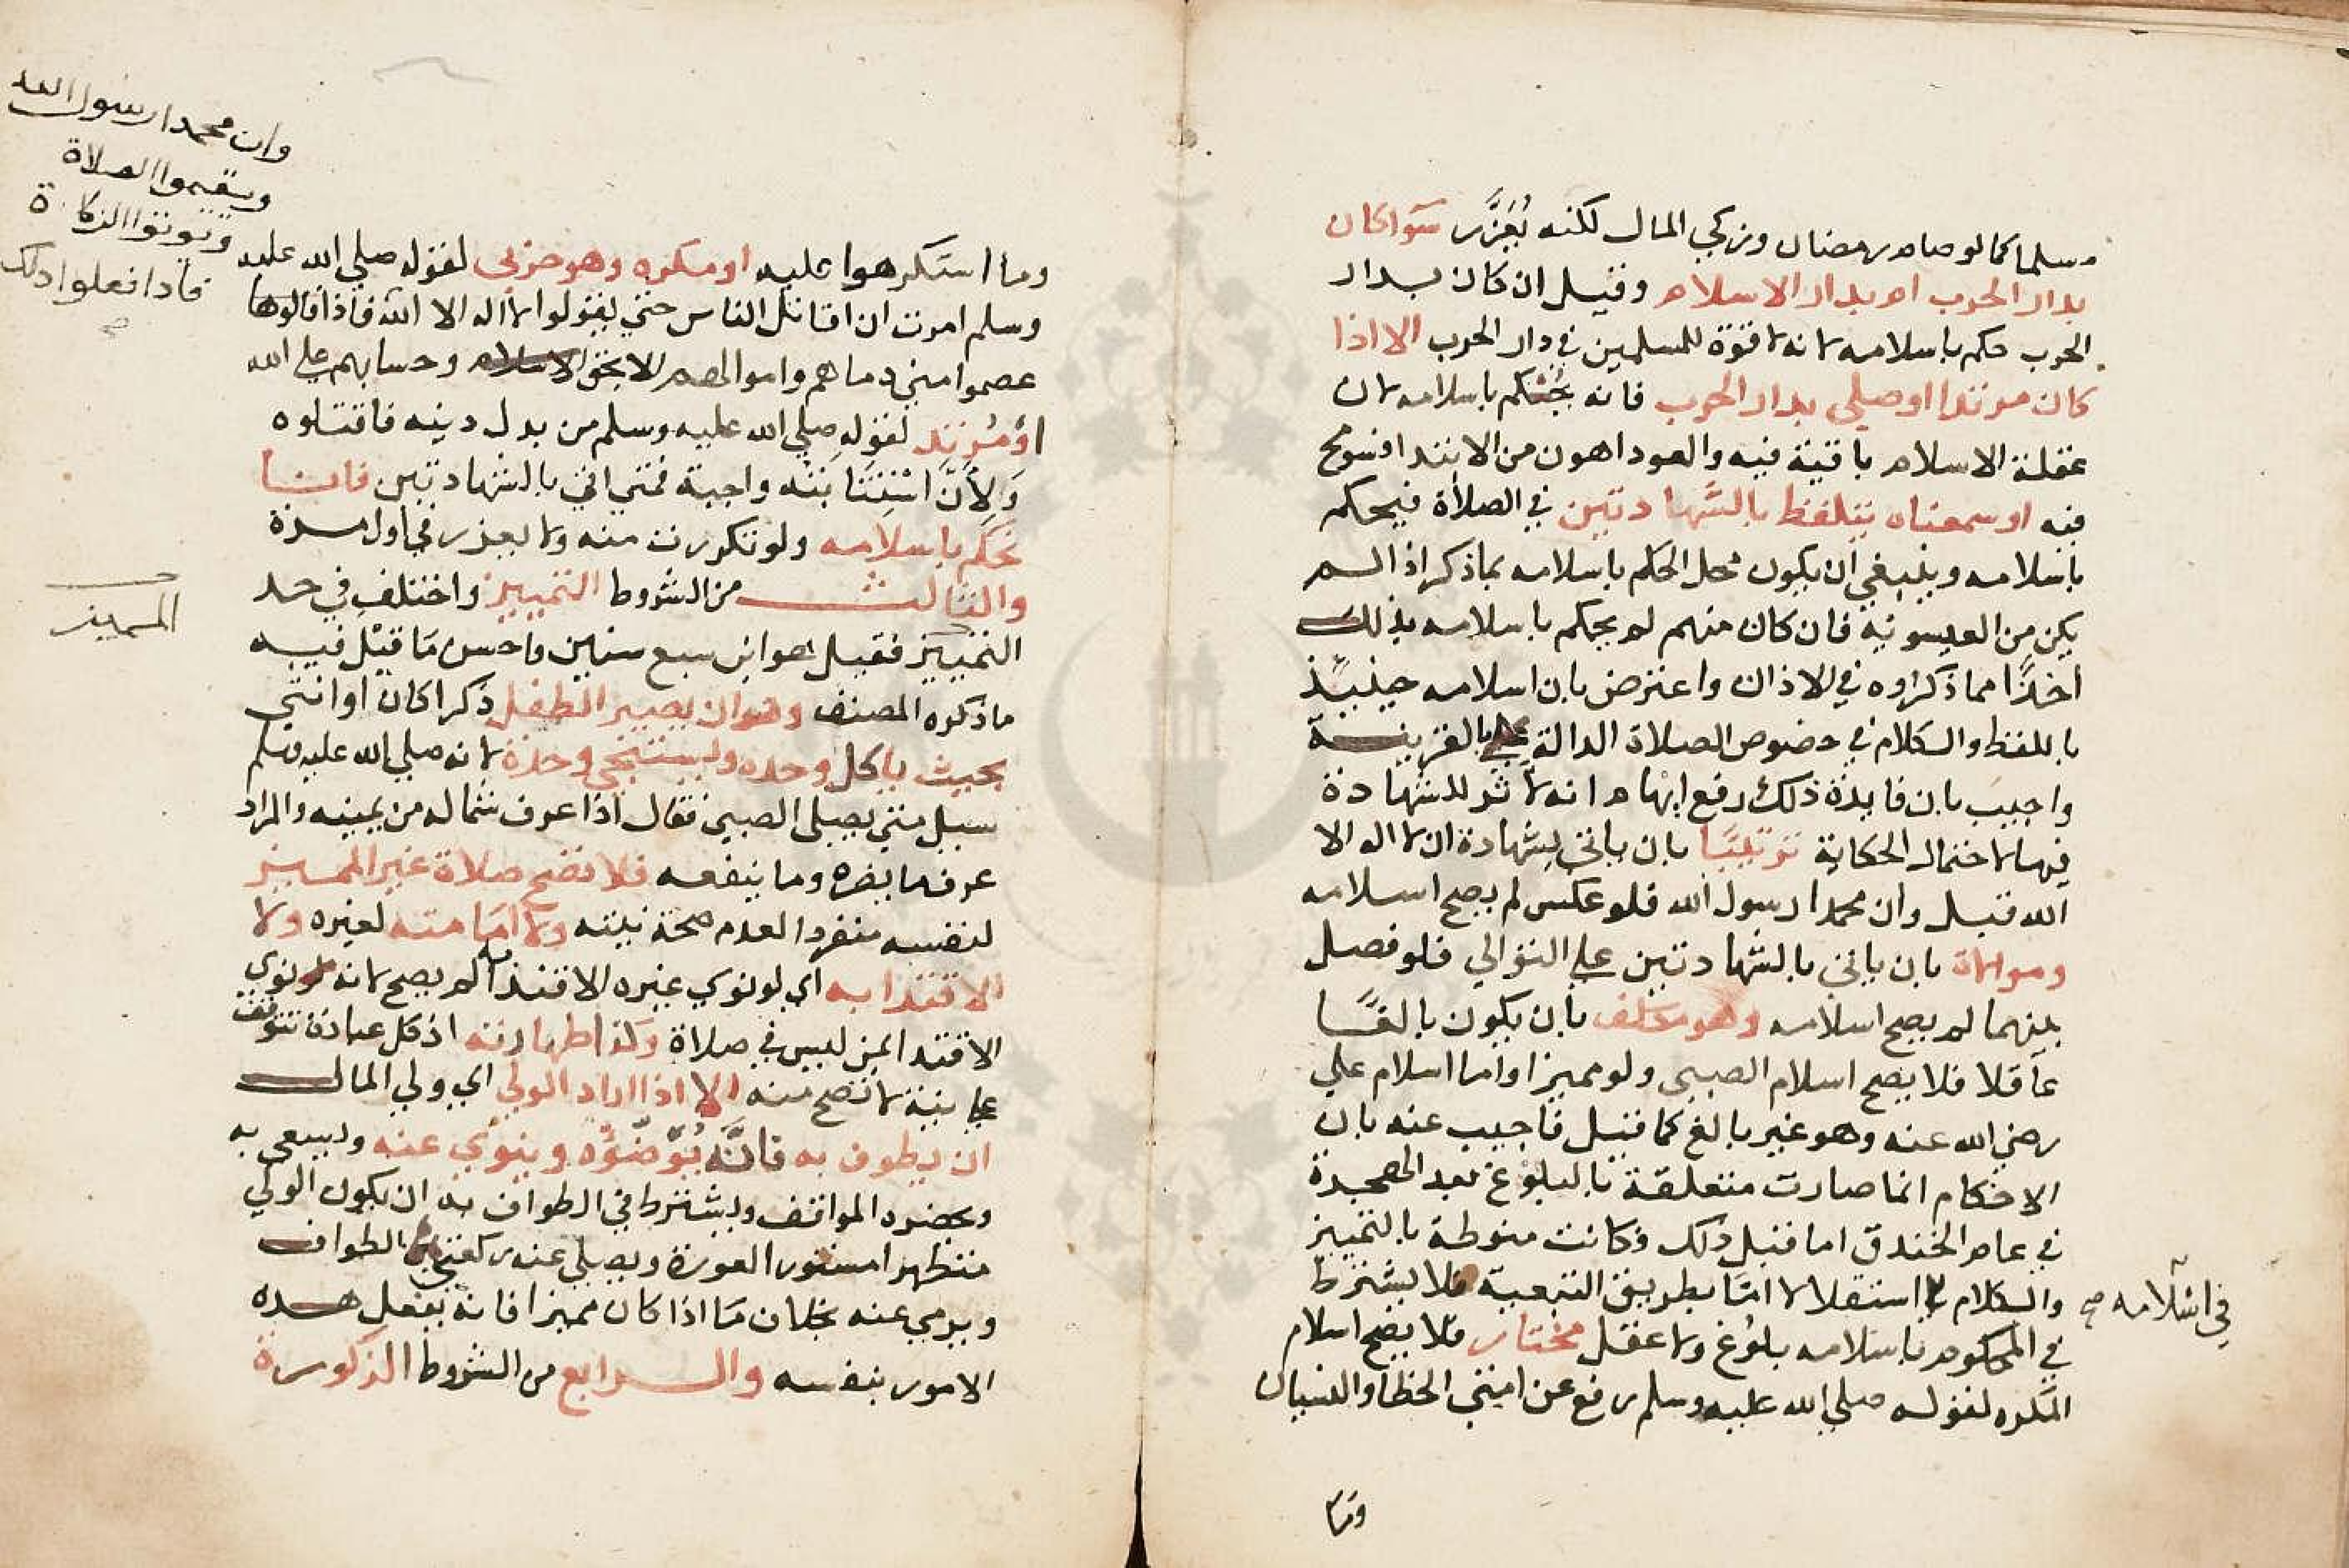 مسلما كما لو صام رمضان وزكي المال لكنه يُعَزَّر سَوا كان
بدار الحرب ام بدار الاسلام وقيل ان كان بدار
الحرب حكم باسلامه لانه لا قوة للمسلمين في دار الحرب الا اذا
كان مرتدا او صلي بدار الحرب فانه يحكم باسلامه لان
عقلة الاسلام باقية فيه والعود اهون من الابتدا فسومح
فيه او سمعناه يتلفظ بالشهادتين في الصلاة فيحكم
باسلامه وينبغي ان يكون محل الحكم باسلامه بما ذكر اذا لم
يكن من العيسوية فان كان منهم لم يحكم باسلامه بذلك
اخذًا مما ذكروه في الاذان واعترض بان اسلامه حينيذ
باللفظ والكلام في خصوص الصلاة الدالة علي بالقرينة
واجيب بان فايدة ذلك رفع ايهام انه لا اثر للشهادة
فيها لاحتمال الحكاية ترتيبًا بان ياتي بشهادة ان لا اله الا
الله قبل وان محمدا رسول الله فلو عكس لم يصح اسلامه
وموالاة بان ياتي بالشهادتين علي التوالي فلو فصل
بينهما لم يصح اسلامه وهو مكلف بان يكون بالغًا
عاقلا فلا يصح اسلام الصبي ولو مميزا واما اسلام علي
رضي الله عنه وهو غير بالغ كما قيل فاجيب عنه بان
الاحكام انما صارت متعلقة بالبلوغ بعد الهجرة
في عام الخندق اما قبل ذلك فكانت منوطة بالتمييز
والكلام استقلالا امَّا بطريق التبعية فلا يشترط
في اسلامه صح
في المحكوم باسلامه بلوغ ولا عقل مختار فلا يصح اسلام
المكره لقوله صلي الله عليه وسلم رفع عن امتي الخطا والنسيان
وما
وما استكرهوا عليه او مكره وهو حربي لقوله صلي الله عليه
وسلم امرت ان اقاتل الناس حتي يقولوا لا اله الا الله فاذا قالوها
وان محمدا رسول الله
ويقيموا الصلاة
ويوتوا الزكاة
فاذا فعلوا ذلك
صح
عصموا مني دماهم واموالهم الا بحق الاسلام وحسابهم علي الله
اوْ مُرتد لقوله صلي الله عليه وسلم من بدل دينه فاقتلوه
وَلِأَنَّ اسْتِتَابَتَه واجبة فمتي اتي بالشهادتين فاننا
نَحكم باسلامه ولو تكررت منه ولا يعذر في اول مرة
والثالث من الشروط التمييز واختلف في حد
المميز
التمييز فقيل هو ابن سبع سنين واحسن مَا قيل فيه
ما ذكره المصنف وهو ان يصير الطفل ذكرا كان او انثي
بحيث ياكل وحده ويستنجي وحده لانه صلي الله عليه وسلم
سيل متي يصلي الصبي فقال اذا عرف شماله من يمينه والمراد
عرف ما يضره وما ينفعه فلا تصح صلاة غير المميز
لنفسه منفردا لعدم صحة نيته ولا امامته لغيره ولا
الاقتدا به اي لو نوي غيره الاقتدا به لم يصح لانه نوي
الاقتدا بمن ليس في صلاة وكذا طهارته اذ كل عبادة تتوقف
علي نية لا تصح منه الا اذا اراد الولي اي ولي المال
ان يطوف به فانَّه يُوَضّؤه وينوي عنه ويسعي به
ويحضره المواقف ويشترط في الطواف به ان يكون الولي
متطهرا مستور العورة ويصلي عنه ركعتي الطواف
ويرمي عنه بخلاف مَا اذا كان مميزا فانه يفعل هذه
الامور بنفسه والرابع من الشروط الذكورة